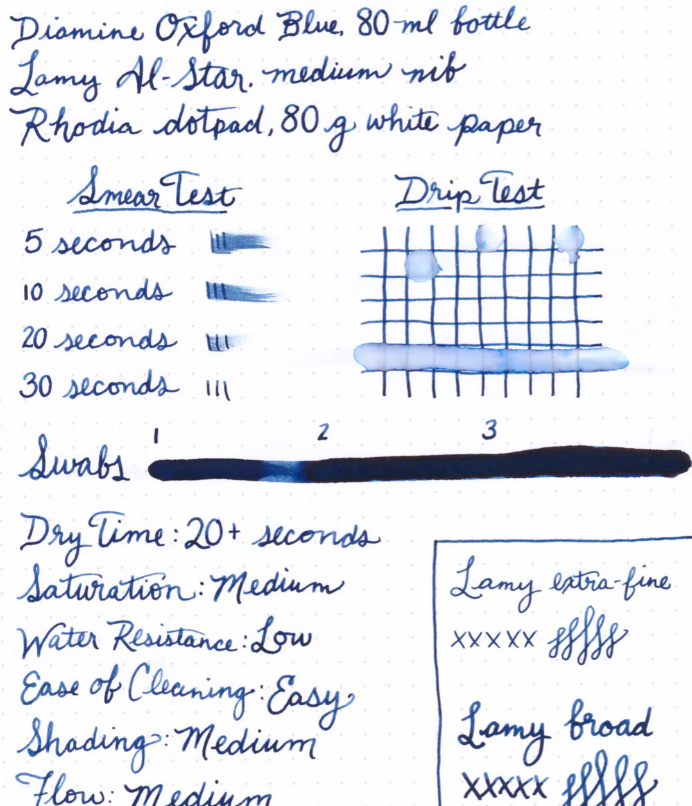 Diamine Oxford Blue, 80-ml bottle
Lamy Al-Star, medium nib
Rhodia dotpad, 80 g white paper
Smear Test
5 seconds
10 seconds
20 seconds
30 seconds
Drip Test
1 2 3
Swabs
Dry Time: 20+ seconds
Saturation: Medium
Water Resistance: Low
Ease of Cleaning: Easy
Shading: Medium
Flow: Medium
Lamy extra-fine
xxxxx fffff
Lamy broad
xxxxx fffff